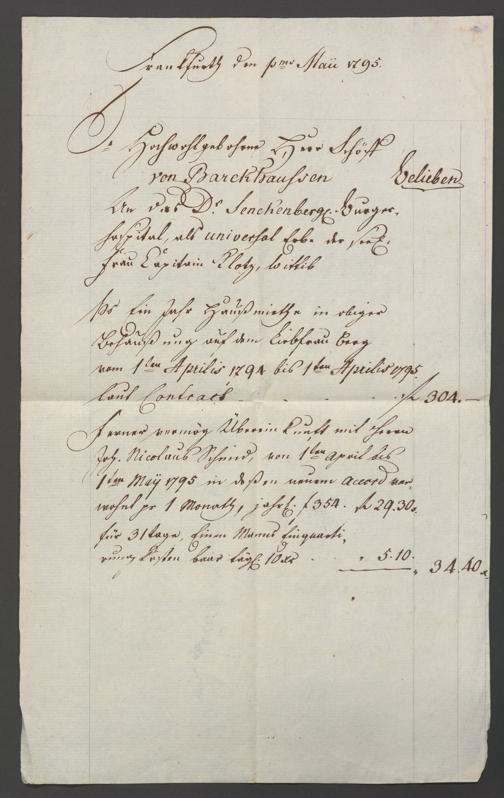 Frankfurth den pmo Maii 1795.
Sr Hochwohlgebohrne Herr Schöff
von Barckhaussen Belieben
An das Dr. Senckenbergl. Burger-
hospital, als universal Erbe der seel.
Frau Capitain Klotz, Wittib
Ein Jahr Haußmiethe in obiger
Behaußung auf dem Liebfrau Berg
vom 1ten Aprilis 1794 bis 1ten Aprilis 1795.
laut Contract f 304.—
Ferner vermög Übereinkunft mit Herrn
Joh. Nicolaus Schmid, von 1ten April bis
1ten Maÿ 1795 in deßen neuem accord ver-
wohnt pr 1 Monath, jährl. f 354. f 29.30x
für 31 tage, Einen Mann Einquarti-
rung Kosten baar tägl. 10 xr " 5.10.
" 34.40x